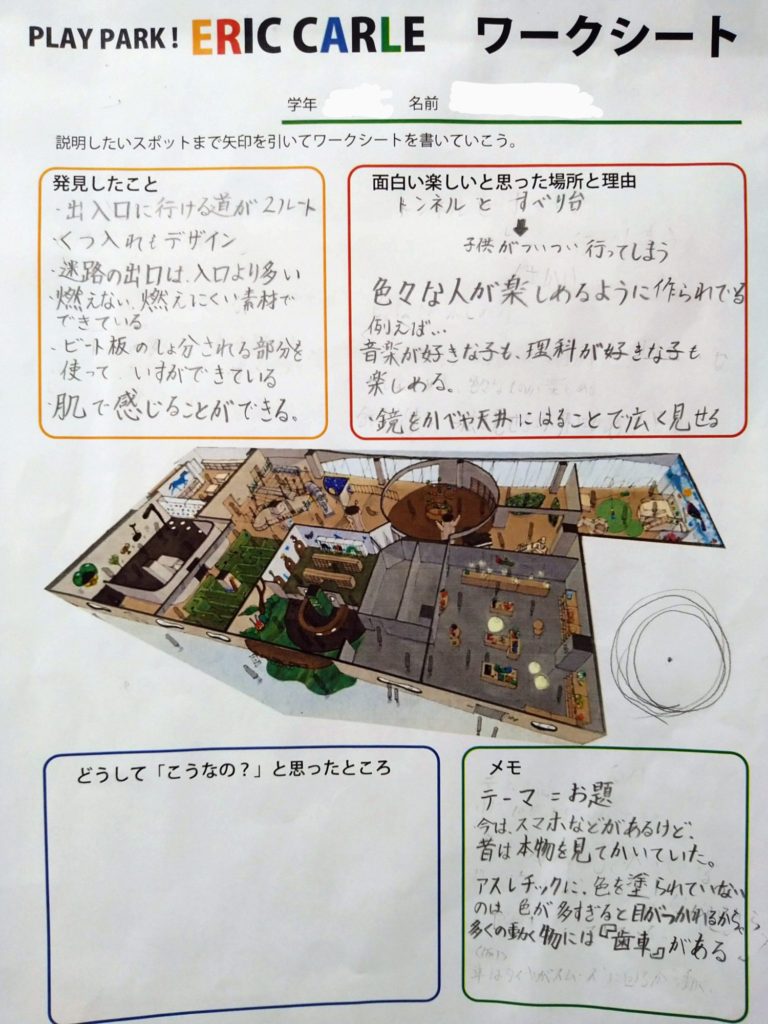 PLAY PARK! ERIC CARLE ワークシート
学年 名前
説明したいスポットまで矢印を引いてワークシートを書いていこう。
発見したこと
・出入口に行ける道が2ルート
・くつ入れもデザイン
・迷路の出口は、入口より多い
・燃えない、燃えにくい素材で
できている
・ビート板のしょ分される部分を
使って いすができている
・肌で感じることができる。
面白い楽しいと思った場所と理由
トンネル と すべり台
⬇
子供がついつい行ってしまう
色々な人が楽しめるように作られてる
例えば…
音楽が好きな子も、理科が好きな子も
楽しめる。
・鏡をかべや天井にはることで広く見せる
どうして「こうなの？」と思ったところ
メモ
テーマ = お題
今は、スマホなどがあるけど、
昔は本物を見てかいていた。
アスレチックに、色を塗られていない
のは 色が多すぎると目がつかれるから
多くの動く物には『歯車』がある